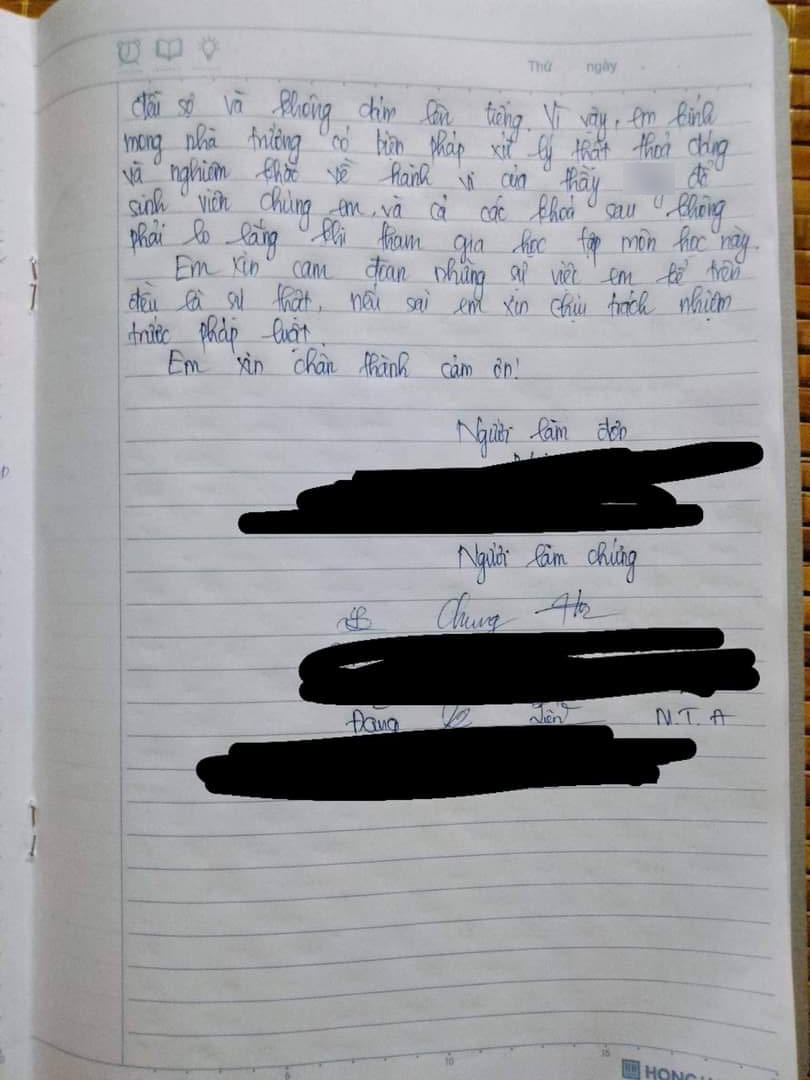 Thứ ngày
đều sợ và không dám lên tiếng. Vì vậy, em kính
mong nhà trường có biện pháp xử lý thật thoả đáng
và nghiêm khắc về hành vi của thầy để
sinh viên chúng em, và cả các khoá sau không
phải lo lắng khi tham gia học tập môn học này.
Em xin cam đoan những sự việc em kể trên
đều là sự thật, nếu sai em xin chịu trách nhiệm
trước pháp luật
Em xin chân thành cảm ơn!
Người làm đơn
Người làm chứng
Chung
Đặng N.T.A
5 10 15